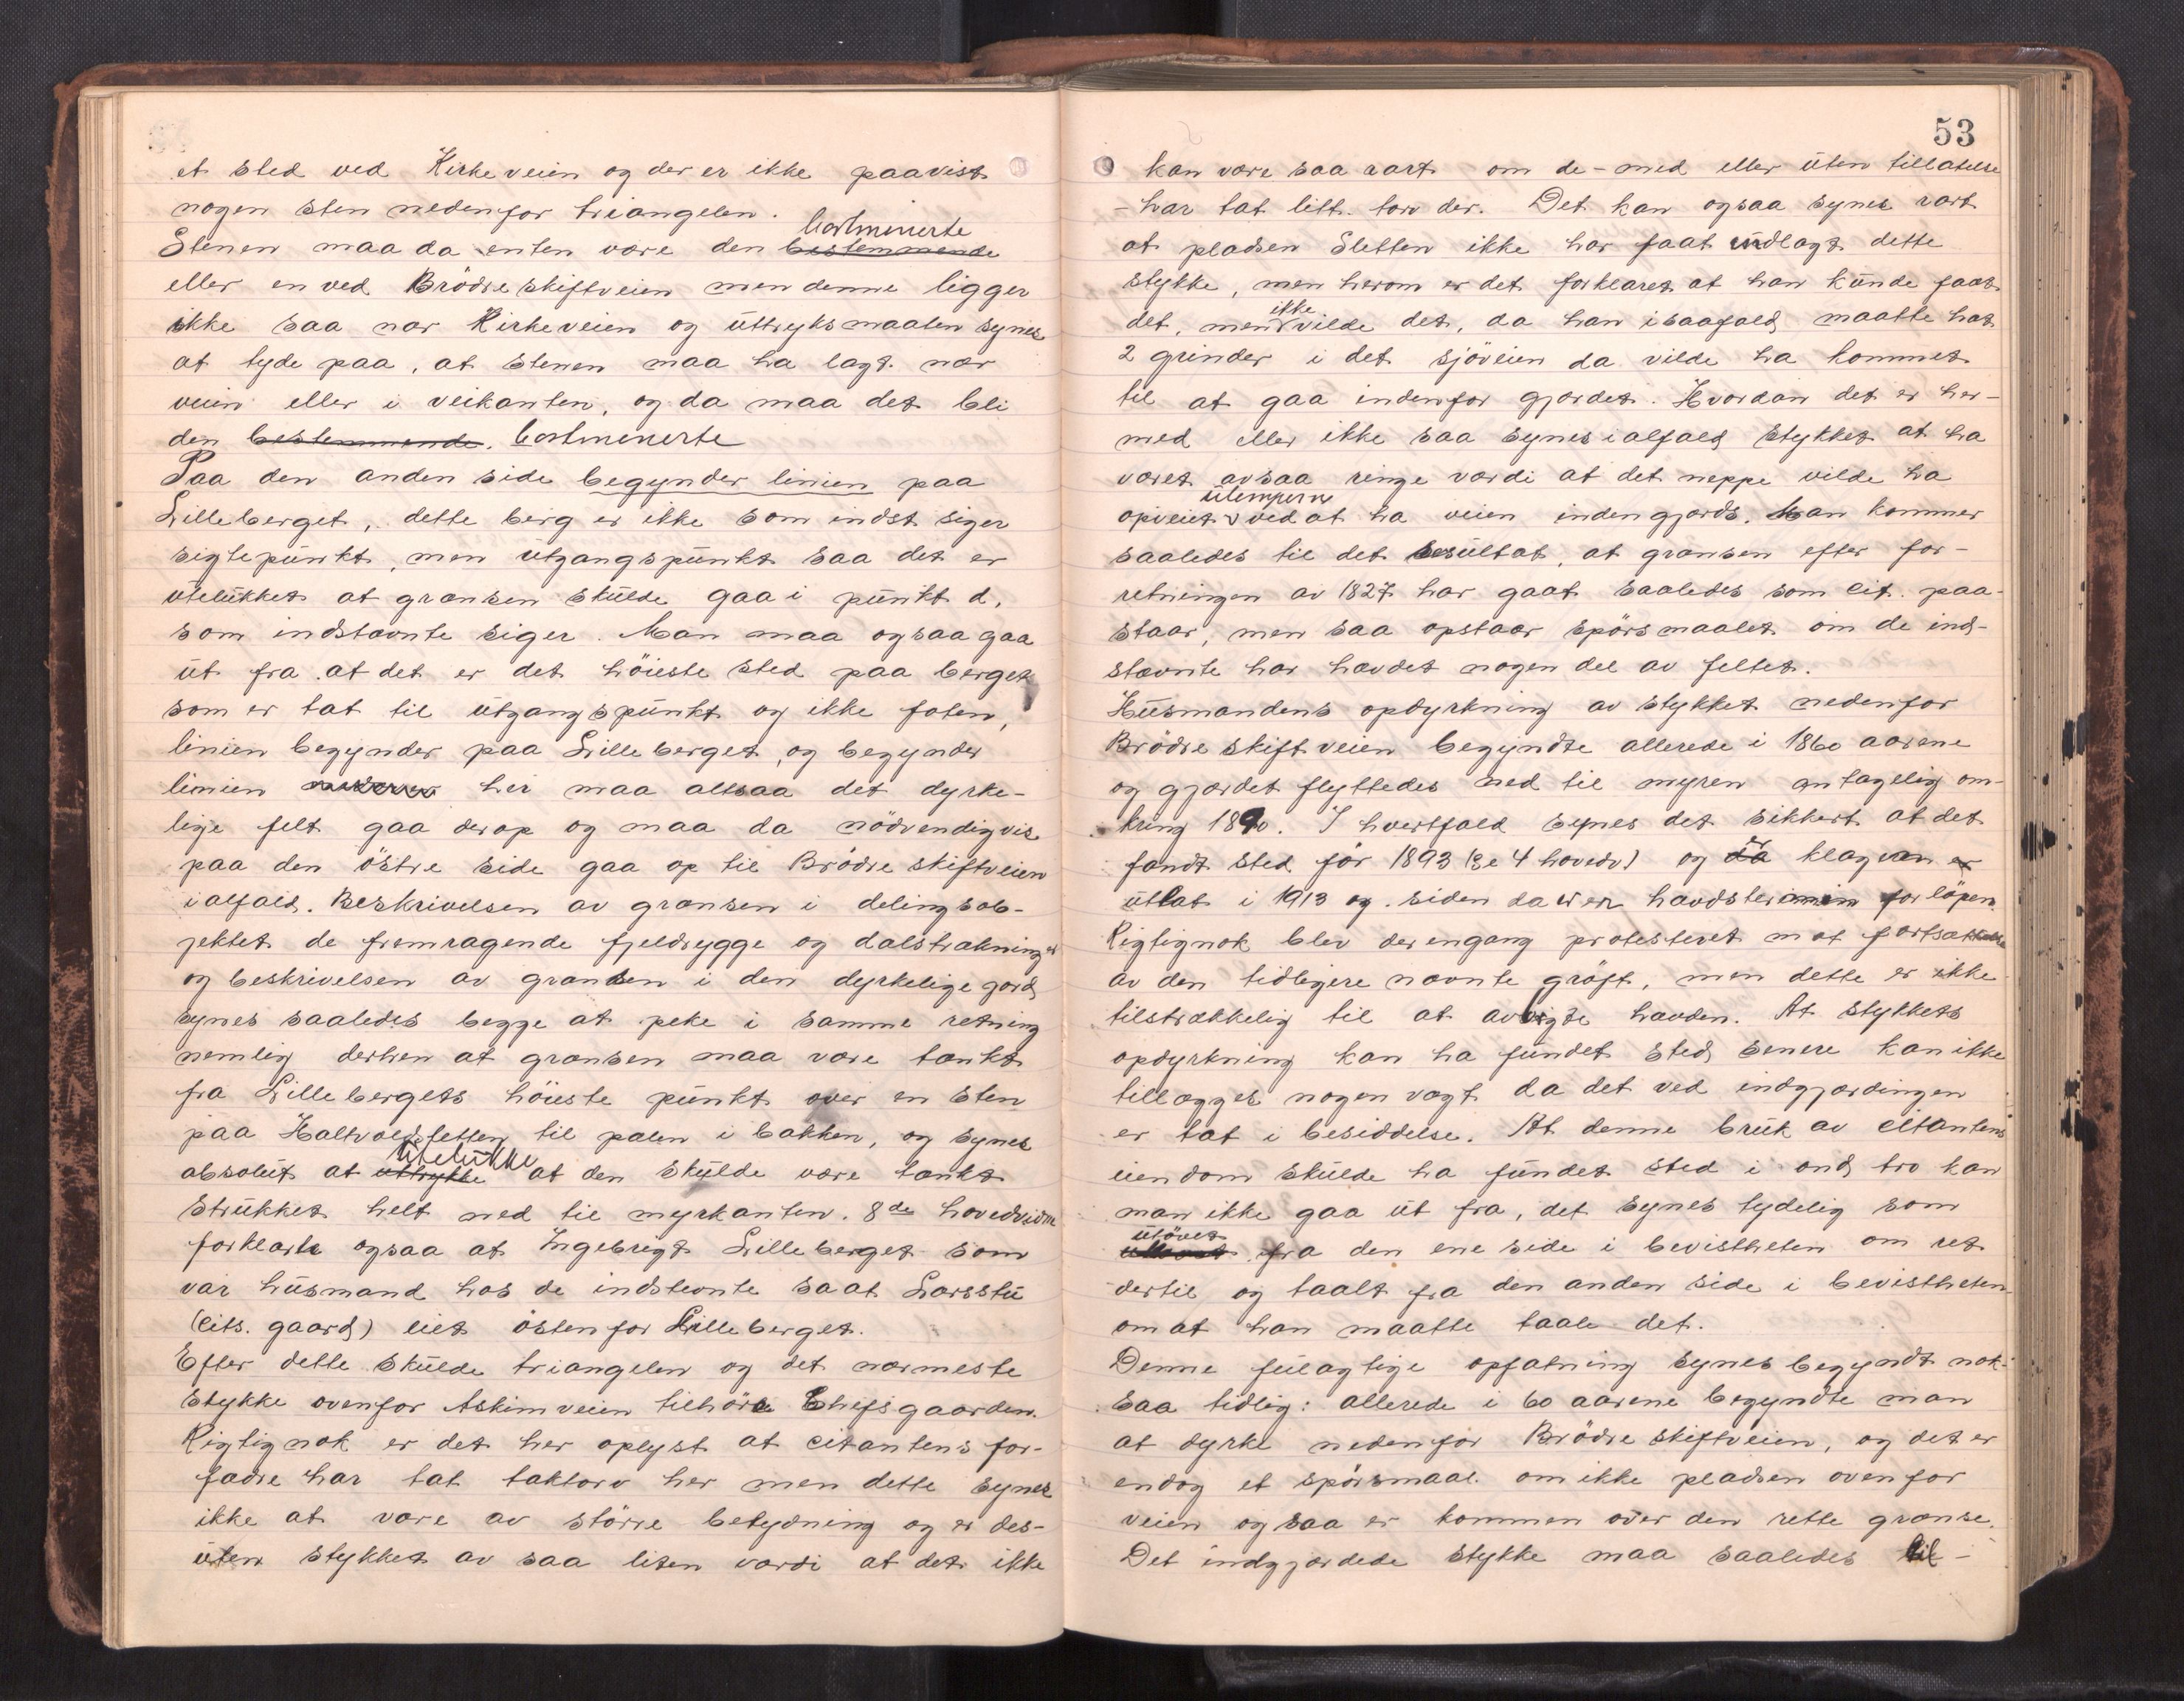 et sted ved Kirkeveien og der er ikke paavist
nogen sten nedenfor triangelen.
bortminerte
Stenen maa da enten være den bestemmende
eller en ved Brödreskiftveien men denne ligger
ikke saa nær Kirkeveien og uttryksmaaten synes
at tyde paa, at stenen maa ha lagt nær
veien eller i veikanten, og da maa det bli
den bestemmende. bortminerte
Paa den anden side begynder linien paa
Lilleberget, dette berg er ikke som indst siger
sigtepunkt, men utgangspunkt saa det er
utelukket at grænsen skulde gaa i punkt d,
som indstævnte siger. Man maa ogsaa gaa
ut fra at det er det höieste sted paa berget
som er tat til utgangspunkt og ikke foten,
linien begynder paa Lilleberget, og begynder
linien her maa altsaa det dyrke-
lige felt gaa derop og maa da nödvendigvis
paa den östre side gaa op til Brödreskiftveien
ialfald. Beskrivelsen av grænsen i delingsob-
jektet de fremragende fjeldrygge og dalstrækninger
og beskrivelsen av grænsen i den dyrkelige jord
synes saaledes begge at peke i samme retning
nemlig derhen at grænsen maa være tænkt
fra Lillebergets höieste punkt over en sten
paa Haltvoldsletten til pælen i bakken, og synes
utelukke
absolut at uttrykke at den skulde være tænkt
strukket helt ned til myrkanten. 8de hovedvidne
forklarte ogsaa at Ingebrigt Lilleberget som
var husmand hos de indstevnte saa at Larsstu
(cits. gaard) eiet östenfor Lilleberget.
Efter dette skulde triangelen og det nærmeste
stykke ovenfor Askimveien tilhöre Chefsgaarden.
Rigtignok er det her oplyst at citantens for-
fædre har tat taktorv her men dette synes
ikke at være av större betydning og er des-
uten stykket av saa liten værdi at det ikke
53
kan være saa rart om de - med eller uten tillatelse
- har tat litt torv der. Det kan ogsaa synes rart
at pladsen Sletten ikke har faat indlagt dette
stykke, men herom er det forklaret at han kunde faat
ikke
det, men vilde det, da han isaafald maatte hat
2 grinder i det sjöveien da vilde ha kommet
til at gaa indenfor gjærdet. Hvordan det er her-
med eller ikke saa synes ialfald stykket at ha
været av saa ringe værdi at det neppe vilde ha
ulempern
opveiet ved at ha veien indengjærds. Man kommer
saaledes til det resultat, at grænsen efter for-
retningen av 1827 har gaat saaledes som cit. paa-
staar, men saa opstaar spörsmaalet om de ind-
stævnte har hævdet nogen del av feltet.
Husmandens opdyrkning av stykket nedenfor
Brödreskiftveien begyndte allerede i 1860 aarene
og gjærdet flyttedes ned til myren antagelig om-
kring 1890. I hvertfald synes det sikkert at det
fandt sted för 1893 (se 4 hovedv) og da klagen er
uttat i 1913 og siden da er en hævdstermin forlöpen.
Rigtignok blev der engang protesteret mot fortsættelse
av den tidligere nævnte gröft, men dette er ikke
tilstrækkelig til at avbryde hævden. At stykkets
opdyrkning kan ha fundet sted senere kan ikke
tillægges nogen vegt da det ved indgjærdingen
er tat i besiddelse. At denne bruk av citantens
eiendom skulde ha fundet sted i ond tro kan
man ikke gaa ut fra, det synes tydelig som
utövet
fra den ene side i bevistheten om ret
dertil og taalt fra den anden side i bevistheten
om at han maatte taale det.
Denne feilagtige opfatning synes begyndt nok-
saa tidlig: allerede i 60 aarene begyndte man
at dyrke nedenfor Brödreskiftveien, og det er
endog et spörsmaal om ikke pladsen ovenfor
veien ogsaa er kommen over den rette grænse.
Det indgjærdede stykke maa saaledes til-